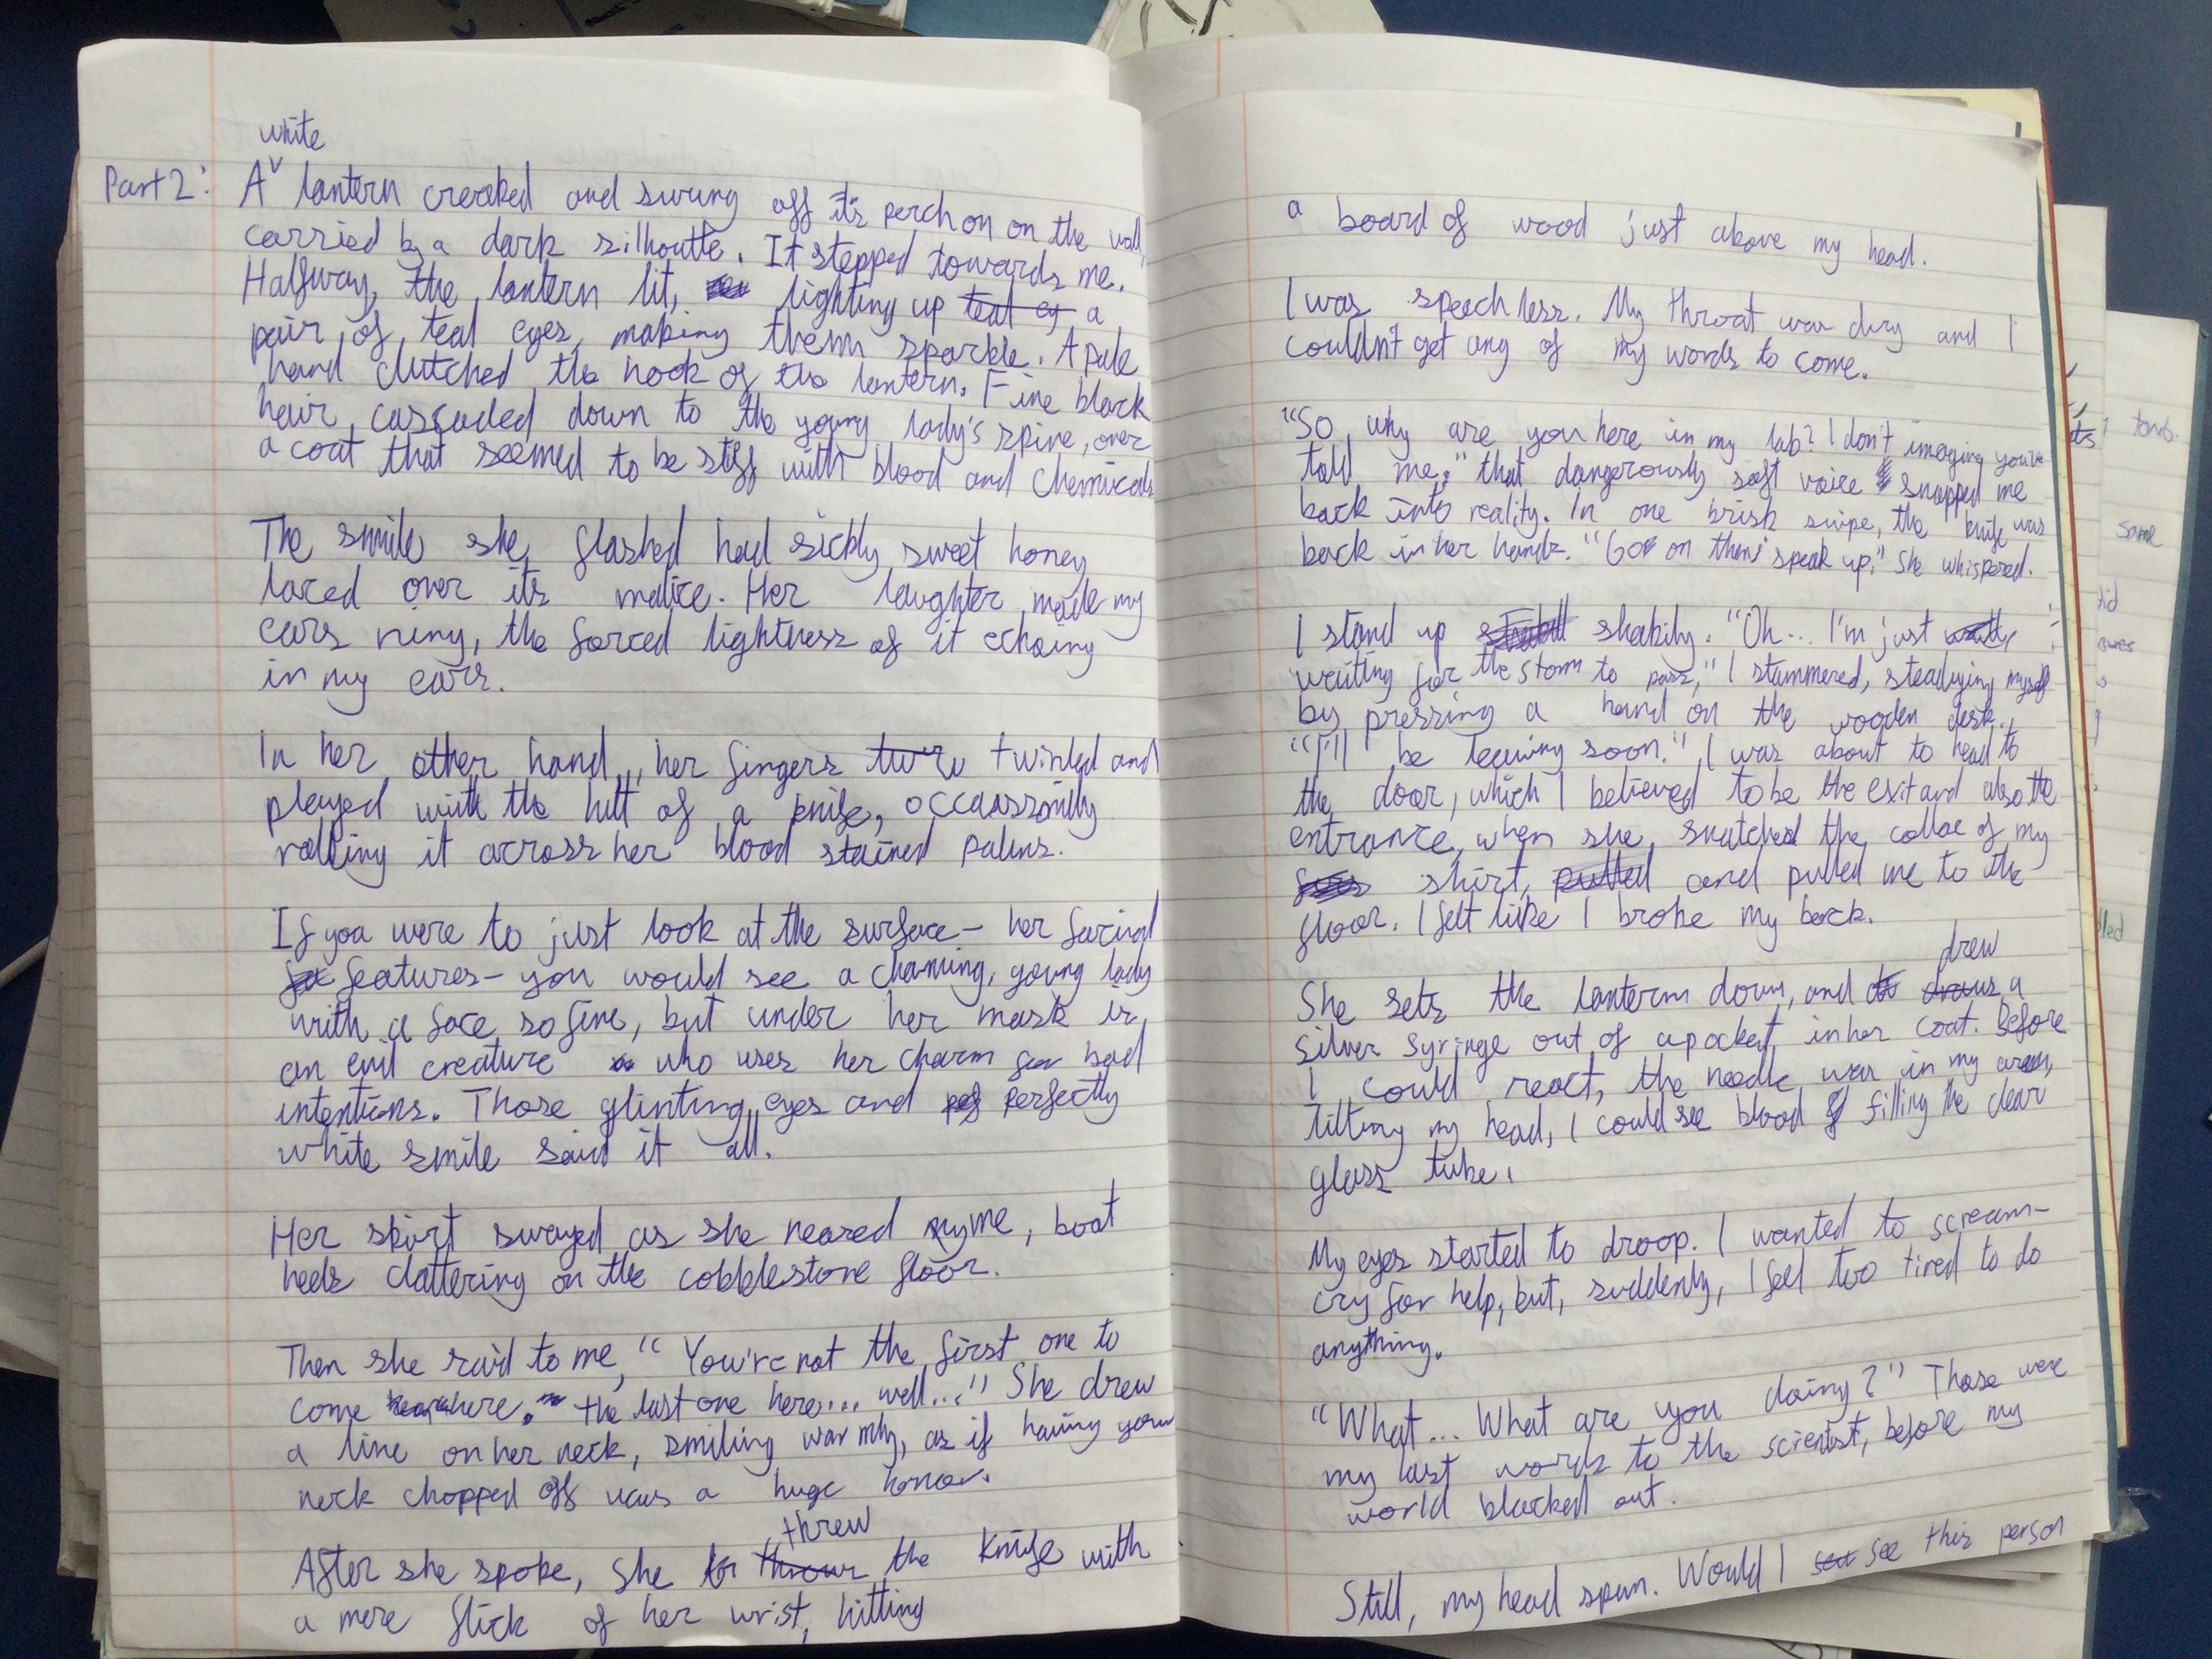 white
Part 2: A lantern creaked and swung off it's perch on on the wall,
carried by a dark silhoutte. It stepped towards me.
Halfway, the lantern lit, lighting up teal ey a
pair of teal eyes, making them sparkle. A pale
hand clutched the hook of the lantern. Fine black
hair cascaded down to the young lady's spine, over
a coat that seemed to be stiff with blood and chemicals
The smile she flashed had sickly sweet honey
laced over its malice. Her laughter made my
ears ring, the forced lightness of it echoing
in my ears.
In her other hand, her fingers twirled and
played with the hilt of a knife, occassionly
rolling it across her blood stained palms.
If you were to just look at the surface - her facial
features - you would see a charming, young lady
with a face so fine, but under her mask is
an evil creature who uses her charm for bad
intentions. Those glinting eyes and perfectly
white smile said it all.
Her skirt swayed as she neared me, boot
heels clattering on the cobblestone floor.
Then she said to me, "You're not the first one to
come here. the last one here... well..." She drew
a line on her neck, smiling warmly, as if having your
neck chopped off was a huge honor.
threw
After she spoke, she throw the knife with
a mere flick of her wrist, hitting
a board of wood just above my head.
I was speechless. My throat was dry and I
couldn't get any of my words to come.
"So why are you here in my lab? I don't imagine you've
told me." that dangerously soft voice snapped me
back into reality. In one brisk swipe, the knife was
back in her hands. "Go on then, speak up." She whispered.
I stand up shakily. "Oh... I'm just
waiting for the storm to pass," I stammered, steadying myself
by pressing a hand on the wooden desk.
"I'll be leaving soon." I was about to head to
the door, which I believed to be the exit and also the
entrance, when she snatched the collar of my
shirt, pulled and pulled me to the
floor. I felt like I broke my back.
drew
She sets the lantern down, and draws a
silver syringe out of a pocket in her coat. Before
I could react, the needle was in my arm,
tilting my head, I could see blood filling the clear
glass tube.
My eyes started to droop. I wanted to scream-
cry for help, but, suddenly, I feel too tired to do
anything.
"What... What are you doing?" Those were
my last words to the scientist, before my
world blacked out.
Still, my head spun. Would I see this person